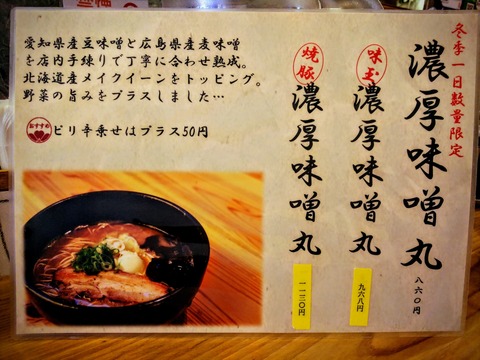 冬季一日数量限定
濃厚味噌丸
八六〇円
味玉
濃厚味噌丸
九六八円
焼豚
濃厚味噌丸
一一三〇円
愛知県産豆味噌と広島県産麦味噌
を店内手練りで丁寧に合わせ熟成。
北海道産メイクイーンをトッピング。
野菜の旨みをプラスしました…
おすすめ
ピリ辛乗せはプラス50円